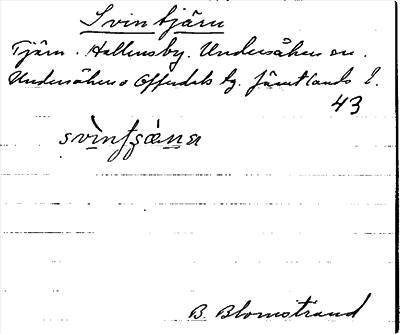 Svintjärn
Tjärn. Hallensby. Undersåkers sn.
Undersåkers o Offerdals tg. Jämtlands l.
43
B. Blomstrand